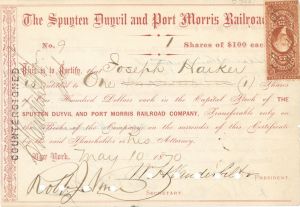 The Spuyten Duyvil and Port Morris Railroad
No. 9
7
Shares of $100 each
This is to Certify, that Joseph Harker
is entitled to One (1) Shares
One Hundred Dollars each in the Capital Stock of THE
SPUYTEN DUYVIL AND PORT MORRIS RAILROAD COMPANY, Transferable only on
Books of the Company on the surrender of this Certificate
Shareholder or His Attorney.
New York, May 10 1870
PRESIDENT.
SECRETARY.
COUNTERSIGNED